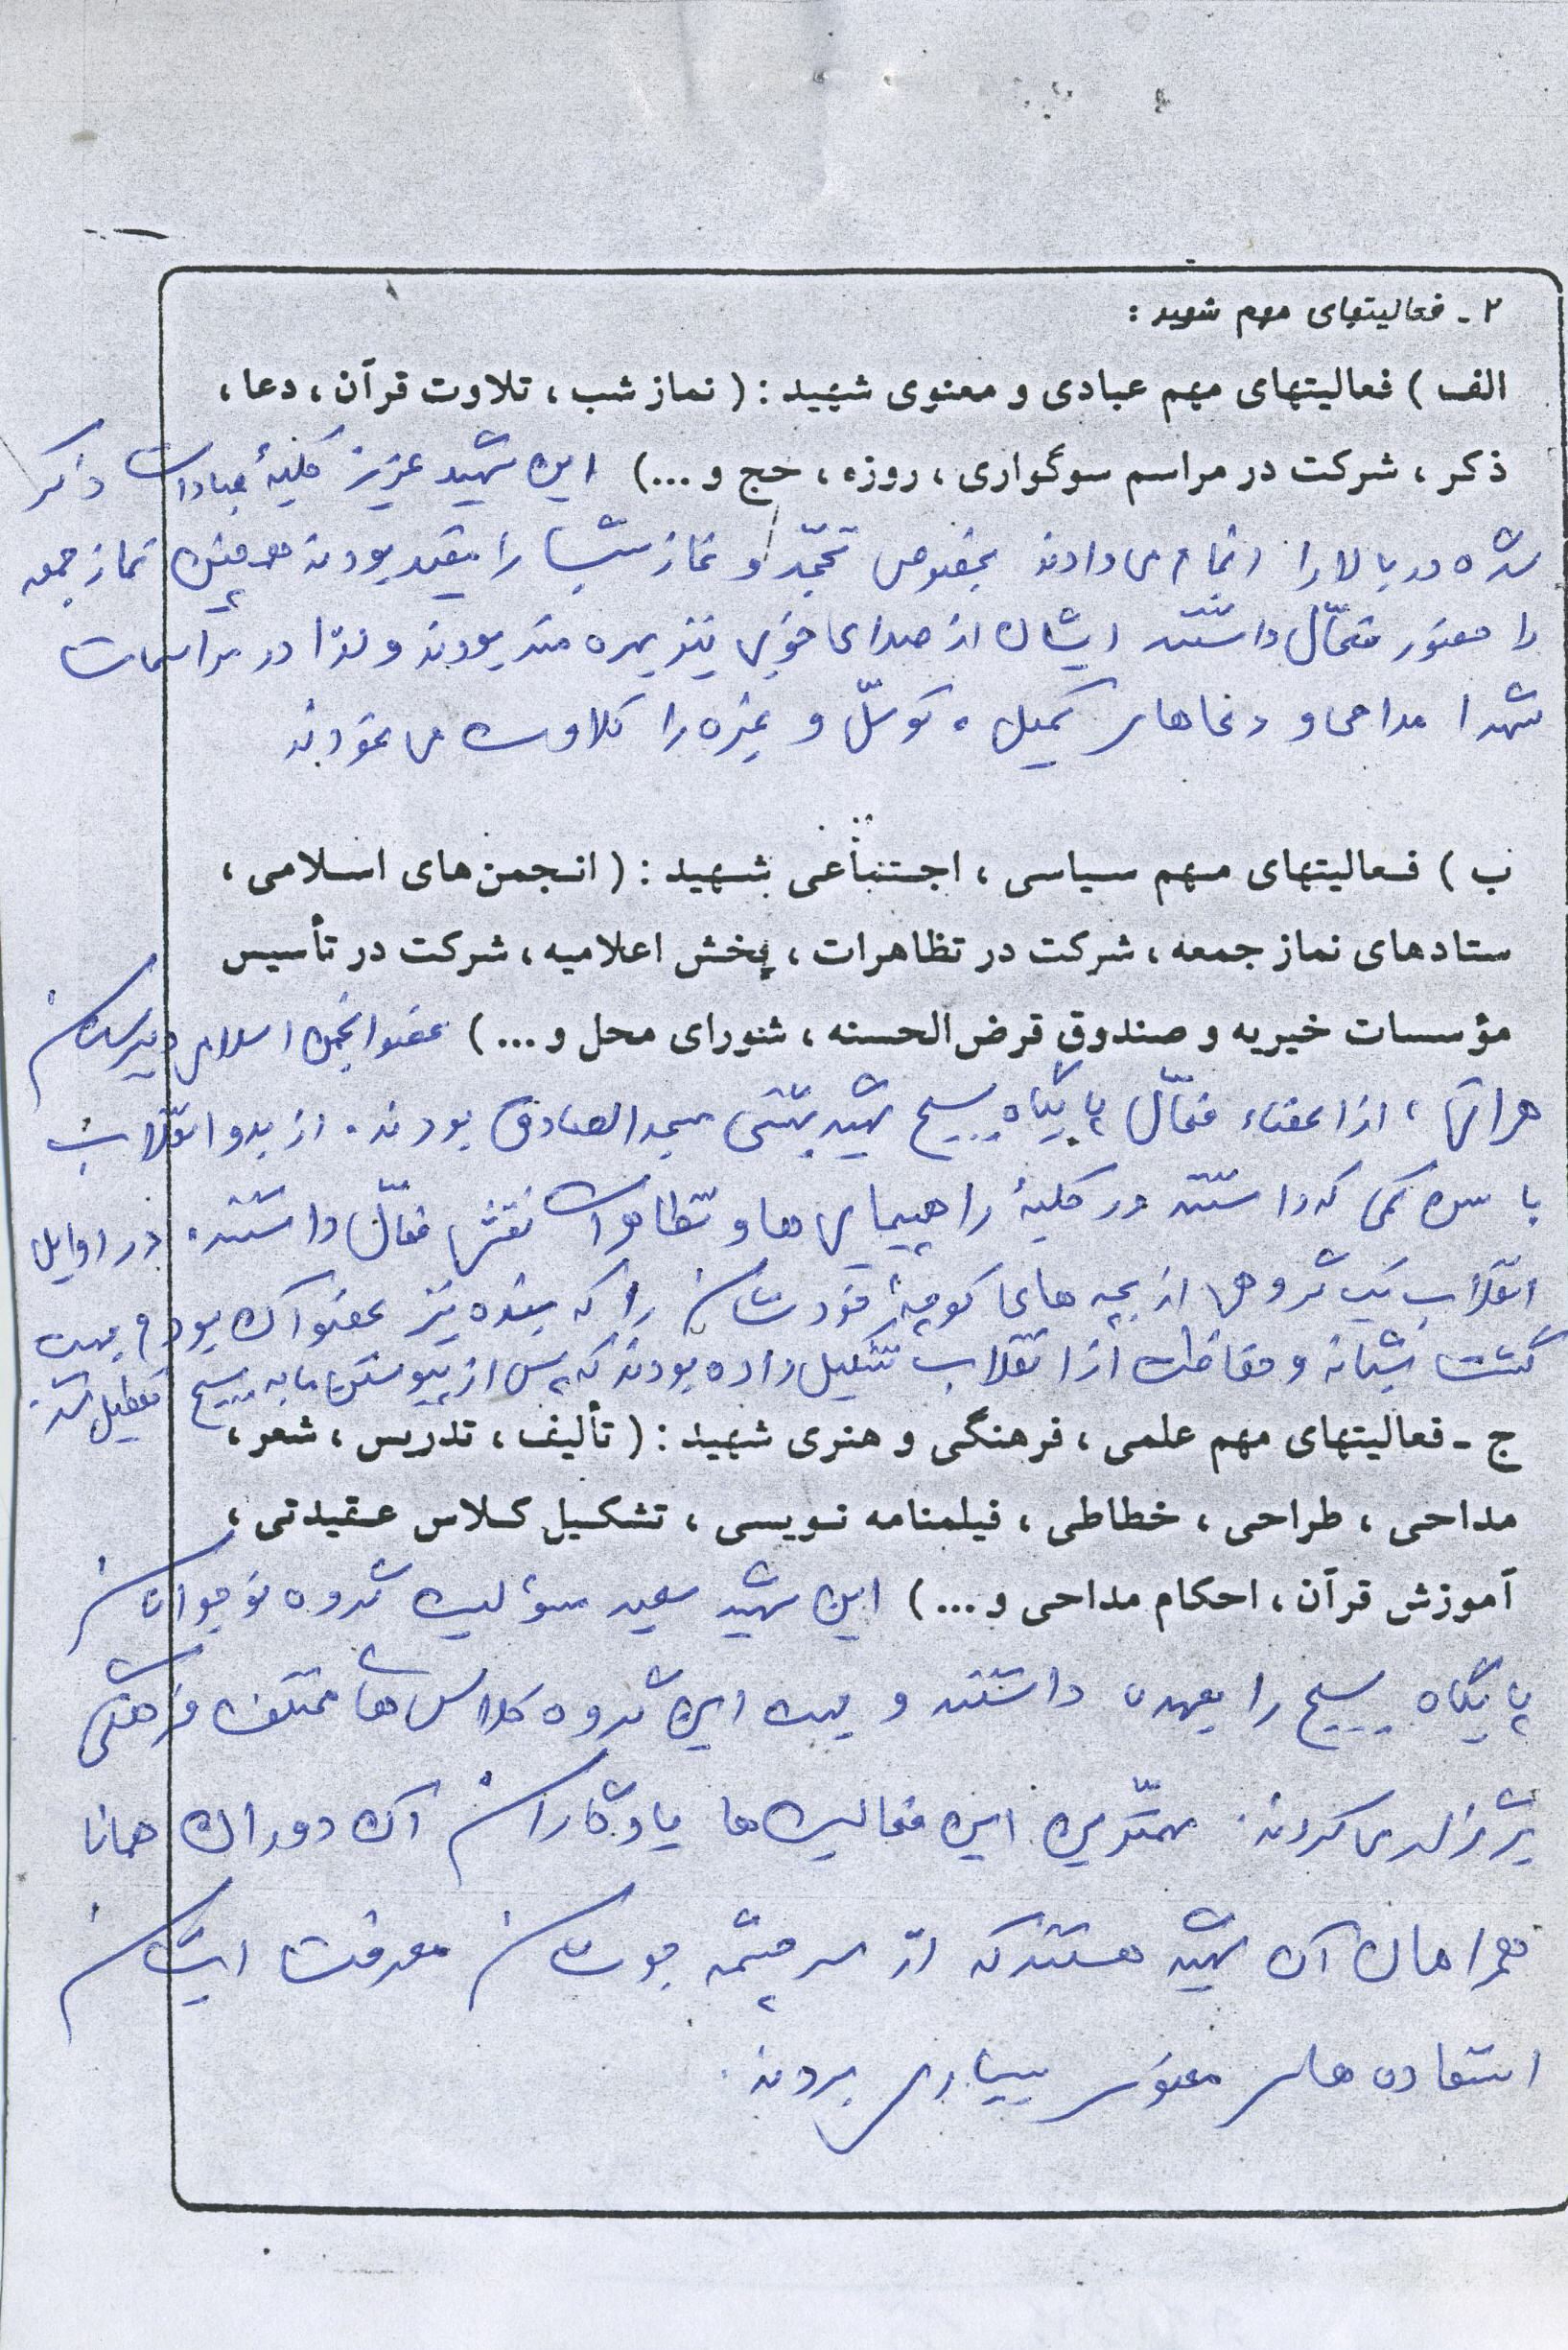 ۲ ـ فعالیتهای مهم شهید :
الف ) فعالیتهای مهم عبادی و معنوی شهید : ( نماز شب ، تلاوت قرآن ، دعا ،
ذکر ، شرکت در مراسم سوگواری ، روزه ، حج و ...) این شهید عزیز کلیهٔ عبادات ذکر
شده در بالا را انجام می دادند بخصوص تهجّد و نماز شب را مقید بودند همچنین نماز جمعه
را حضور فعّال داشتند ایشان از صدای خوبی نیز بهره مند بودند و لذا در مراسمات
شهدا مداحی و دعاهای کمیل ، توسّل و غیره را تلاوت می نمودند
ب ) فعالیتهای مهم سیاسی ، اجتماعی شهید : ( انجمن های اسلامی ،
ستادهای نماز جمعه ، شرکت در تظاهرات ، پخش اعلامیه ، شرکت در تأسیس
مؤسسات خیریه و صندوق قرض الحسنه ، شورای محل و ... ) عضو انجمن اسلامی دبیرستان
هراتی ، از اعضاء فعّال پایگاه بسیج شهید بهشتی مسجد الصادق بودند . از بدو انقلاب
با سن کمی که داشتند در کلیهٔ راهپیمایی ها و تظاهرات نقش فعّال داشتند . در اوایل
انقلاب یک گروهی از بچه های کوچهٔ خودشان را که بنده نیز عضو آن بودم جهت
گشت شبانه و حفاظت از انقلاب تشکیل داده بودند که پس از پیوستن ما به بسیج تعطیل شد .
ج ـ فعالیتهای مهم علمی ، فرهنگی و هنری شهید : ( تألیف ، تدریس ، شعر ،
مداحی ، طراحی ، خطاطی ، فیلمنامه نویسی ، تشکیل کلاس عقیدتی ،
آموزش قرآن ، احکام مداحی و ... ) این شهید سعید مسئولیت گروه نوجوانان
پایگاه بسیج را بعهده داشتند و جهت این گروه کلاس های مختلف فرهنگی
برگزار می کردند . مهمترین این فعالیت ها یادگاران آن دوران همانا
همراهان آن شهید هستند که از سرچشمه جوشان معرفت ایشان
استفاده های معنوی بسیاری بردند .